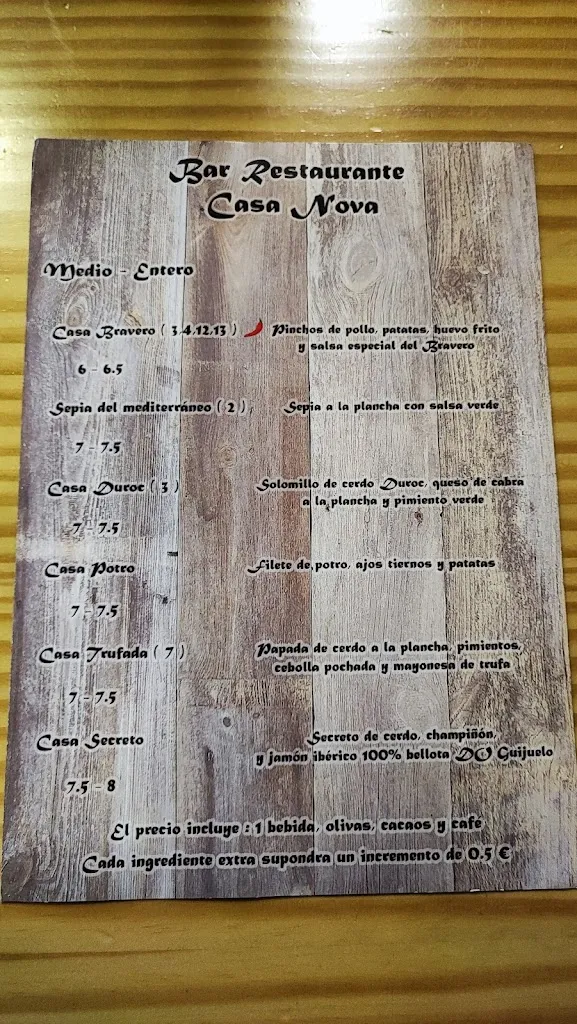 Bar Restaurante
Casa Nova
Medio - Entero
Casa Bravero ( 3.4.12.13 ) Pinchos de pollo, patatas, huevo frito
y salsa especial del Bravero
6 - 6.5
Sepia del mediterráneo ( 2 ) Sepia a la plancha con salsa verde
7 - 7.5
Casa Duroc ( 3 ) Solomillo de cerdo Duroc, queso de cabra
a la plancha y pimiento verde
7 - 7.5
Casa Potro Filete de potro, ajos tiernos y patatas
7 - 7.5
Casa Trufada ( 7 ) Papada de cerdo a la plancha, pimientos,
cebolla pochada y mayonesa de trufa
7 - 7.5
Casa Secreto Secreto de cerdo, champiñón,
y jamón ibérico 100% bellota DO Guijuelo
7.5 - 8
El precio incluye : 1 bebida, olivas, cacaos y cafe
Cada ingrediente extra supondra un incremento de 0.5 €